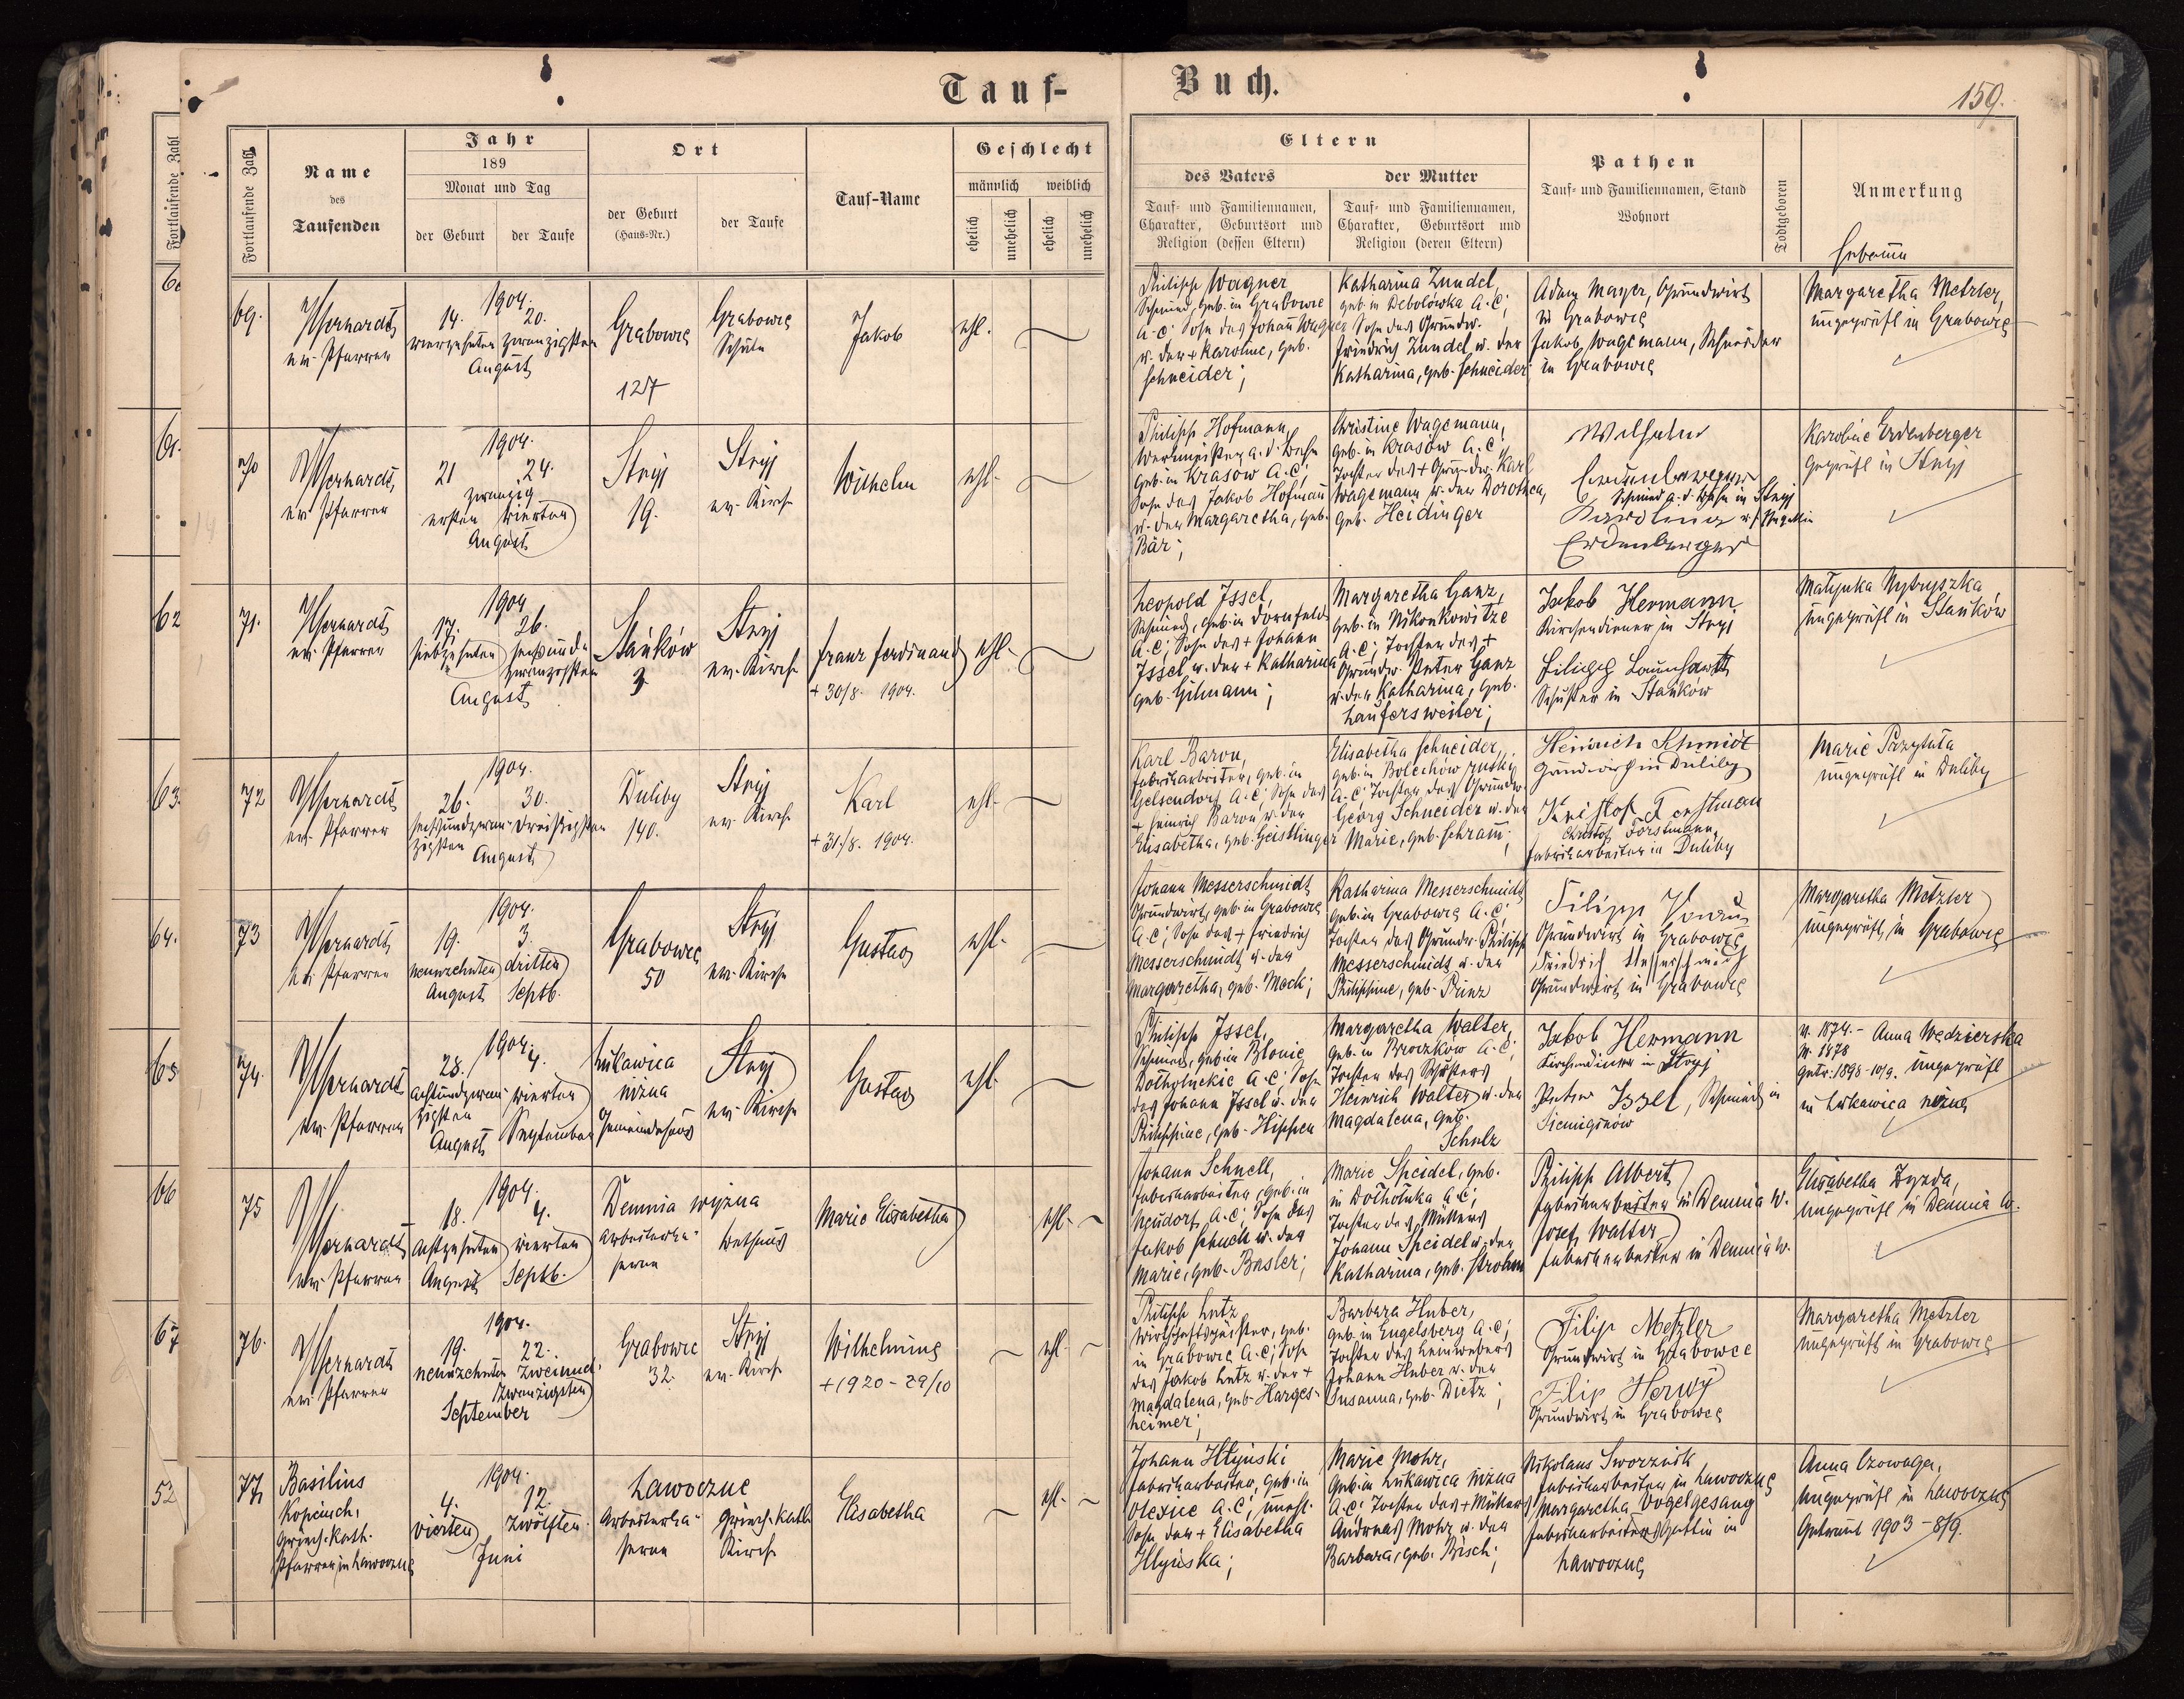 Tauf-
Buch.
159.
Fortlaufende Zahl
Fortlaufende Zahl
Name
des
Taufenden
Jahr
189
Monat und Tag
der Geburt
der Taufe
Ort
der Geburt
(Haus-Nr.)
der Taufe
Tauf-Name
Geschlecht
männlich
weiblich
ehelich
unehelich
ehelich
unehelich
Eltern
des Vaters
Tauf- und Familiennamen,
Charakter, Geburtsort und
Religion (dessen Eltern)
der Mutter
Tauf- und Familiennamen,
Charakter, Geburtsort und
Religion (deren Eltern)
Pathen
Tauf- und Familiennamen, Stand
Wohnort
Todtgeboren
Anmerkung
Hebamme
69.
ev. Pfarrer
1904.
14. 20.
vierzehnten zwanzigsten
August
Grabowce
127
Grabowce
Schule
Jakob
ehl.
Philipp Wagner
Schmied, geb. in Grabowce
A. C. Sohn des Johann Wagner
u. der + Karoline, geb.
Schneider;
Katharina Zundel,
geb. in Debolówka A. C;
Friedrich Zundel u. der
Katharina, geb. Schneider
Adam Mayer, Grundwirt
in Grabowce
Jakob Wagemann, Schneider
in Grabowce
Margaretha Metzler,
ungeprüft in Grabowce
70
ev. Pfarrer
1904.
21 24.
zwanzig
ersten vierten
August
Stryj
19.
Stryj
ev. Kirche
Wilhelm
ehl.
Philipp Hofmann,
Werkmeister a. d. Bahn
geb. in Krasów A. C;
Sohn des Jakob Hofmann
u. der Margaretha, geb.
Bär;
Christine Wagemann,
geb. in Krasów A. C,
Tochter des + Grundw. Karl
Wagemann u. der Dorothea,
geb. Heidinger
Wilhelm
Erdenberger
Schmied a. d. Bahn in Stryj
Karolina
Erdenberger
Karoline Erdenberger
geprüft in Stryj
71.
ev. Pfarrer
1904
17. 26.
siebzehnten sechsund
zwanzigsten
August
Stańków
3
Stryj
ev. Kirche
Franz Ferdinand
+ 30/8. 1904.
ehl.
Leopold Issel,
Schmied, geb. in Dornfeld
A. C; Sohn des + Johann
Issel u. der + Katharina
geb. Gilmann;
Margaretha Ganz,
geb. in Nikonkowitze
A. C; Tochter des +
Grundw. Peter Ganz
u. der Katharina, geb.
Laufersweiler;
Jakob Hermann
Kirchendiener in Stryj
Schuster in Stańków
ungeprüft in Stańków
72
ev. Pfarrer
1904.
26. 30.
sechsundzwan- dreißigsten
zigsten August
Duliby
140.
Stryj
ev. Kirche
Karl
+ 31/8. 1904.
ehl.
Karl Baron,
Fabrikarbeiter, geb. in
Gelsendorf A. C; Sohn des
+ Heinrich Baron u. der
Elisabetha, geb. Geistlinger
Elisabetha Schneider,
geb. in Bolechów ruski
A. C; Tochter des Grundw.
Georg Schneider u. der
Marie, geb. Schram;
Heinrich Schmidt
Grundwirth in Duliby
Kristof Forstman
Christof Forstmann,
Fabrikarbeiter in Duliby
Marie Przytuła
ungeprüft in Duliby
73
ev. Pfarrer
1904.
19. 3.
neunzehnten dritten
August Septb.
Grabowce
50
Stryj
ev. Kirche
Gustav
ehl.
Johann Messerschmidt
Grundwirt, geb. in Grabowce
A. C; Sohn des + Friedrich
Messerschmidt u. der
Margaretha, geb. Mock;
Katharina Messerschmidt
geb. in Grabowce A. C;
Tochter des Grundw. Philipp
Messerschmidt u. der
Philippine, geb. Prinz
Filipp
Grundwirt in Grabowce
Friedrich Messerschmidt
Grundwirt in Grabowce
Margaretha Metzler
ungeprüft in Grabowce
74.
ev. Pfarrer
1904.
28. 4.
achtundzwan- vierten
zigsten
August September
Łukawica
niżna
Gemeindehaus
Stryj
ev. Kirche
Gustav
ehl.
Philipp Issel,
Schmied, geb. in Błonie
A. C; Sohn
des Johann Issel u. der
Philippine, geb. Hippen
Margaretha Walter,
geb. in Broczków A. C;
Tochter des Schusters
Heinrich Walter u. der
Magdalena, geb.
Schulz
Jakob Hermann
Kirchendiener in Stryj
Peter Issel, Schmied in
V. 1874. - Anna Wedzierska
M. 1878
Getr. 1898-10/9. ungeprüft
in Łukawica niżna
75
ev. Pfarrer
1904.
18. 4.
achtzehnten vierten
August Septb.
Demnia wyżna
Arbeiterka-
serne
Bethaus
Marie Elisabetha
ehl.
Johann Schnell,
Fabrikarbeiter, geb. in
Neudorf, A. C; Sohn des
Jakob Schnell u. der
Marie, geb. Basler;
Marie Speidel, geb.
in Dołhołuka A. C;
Tochter des Müllers
Johann Speidel u. der
Katharina, geb. Strohm
Philipp Albert
Fabrikarbeiter in Demnia w.
Josef Walter
Fabrikarbeiter in Demnia w.
Elisabetha Dyzda,
ungeprüft in Demnia w.
76.
ev. Pfarrer
1904.
19. 22.
neunzehnten zweiund-
zwanzigsten
September
Grabowce
32.
Stryj
ev. Kirche
Wilhelmine
+ 1920 - 29/10
ehl.
Philipp Lutz
in Grabowce A. C; Sohn
des Jakob Lutz u. der +
Magdalena, geb. Harges-
heimer;
Barbara Huber,
geb. in Engelsberg A. C;
Tochter des Leinwebers
Johann Huber u. der
Susanna, geb. Dietz;
Filip Metzler
Grundwirt in Grabowce
Filip Herwy
Grundwirt in Grabowce
Margaretha Metzler
ungeprüft in Grabowce
77.
Basilius
griech. kath.
Pfarrer in Ławoczne
1904.
4. 12.
vierten zwölften
Juni
Ławoczne
Arbeiterka-
serne
griech. kath.
Kirche
Elisabetha
ehl.
Johann Hlyński
Fabrikarbeiter, geb. in
A. C; unehl.
Sohn der + Elisabetha
Hlyńska;
Marie Mohr,
geb. in Łukawica niżna
A. C; Tochter des + Müllers
Andreas Mohr u. der
Barbara, geb. Bisch;
Nikolaus Sworznik
Fabrikarbeiter in Ławoczne
Margaretha Vogelgesang
Fabrikarbeitersgattin in
Ławoczne
Anna Czowaga,
ungeprüft in Ławoczne
Getraut 1903 - 8/9.
61.
62
63.
64.
65
66
67
52